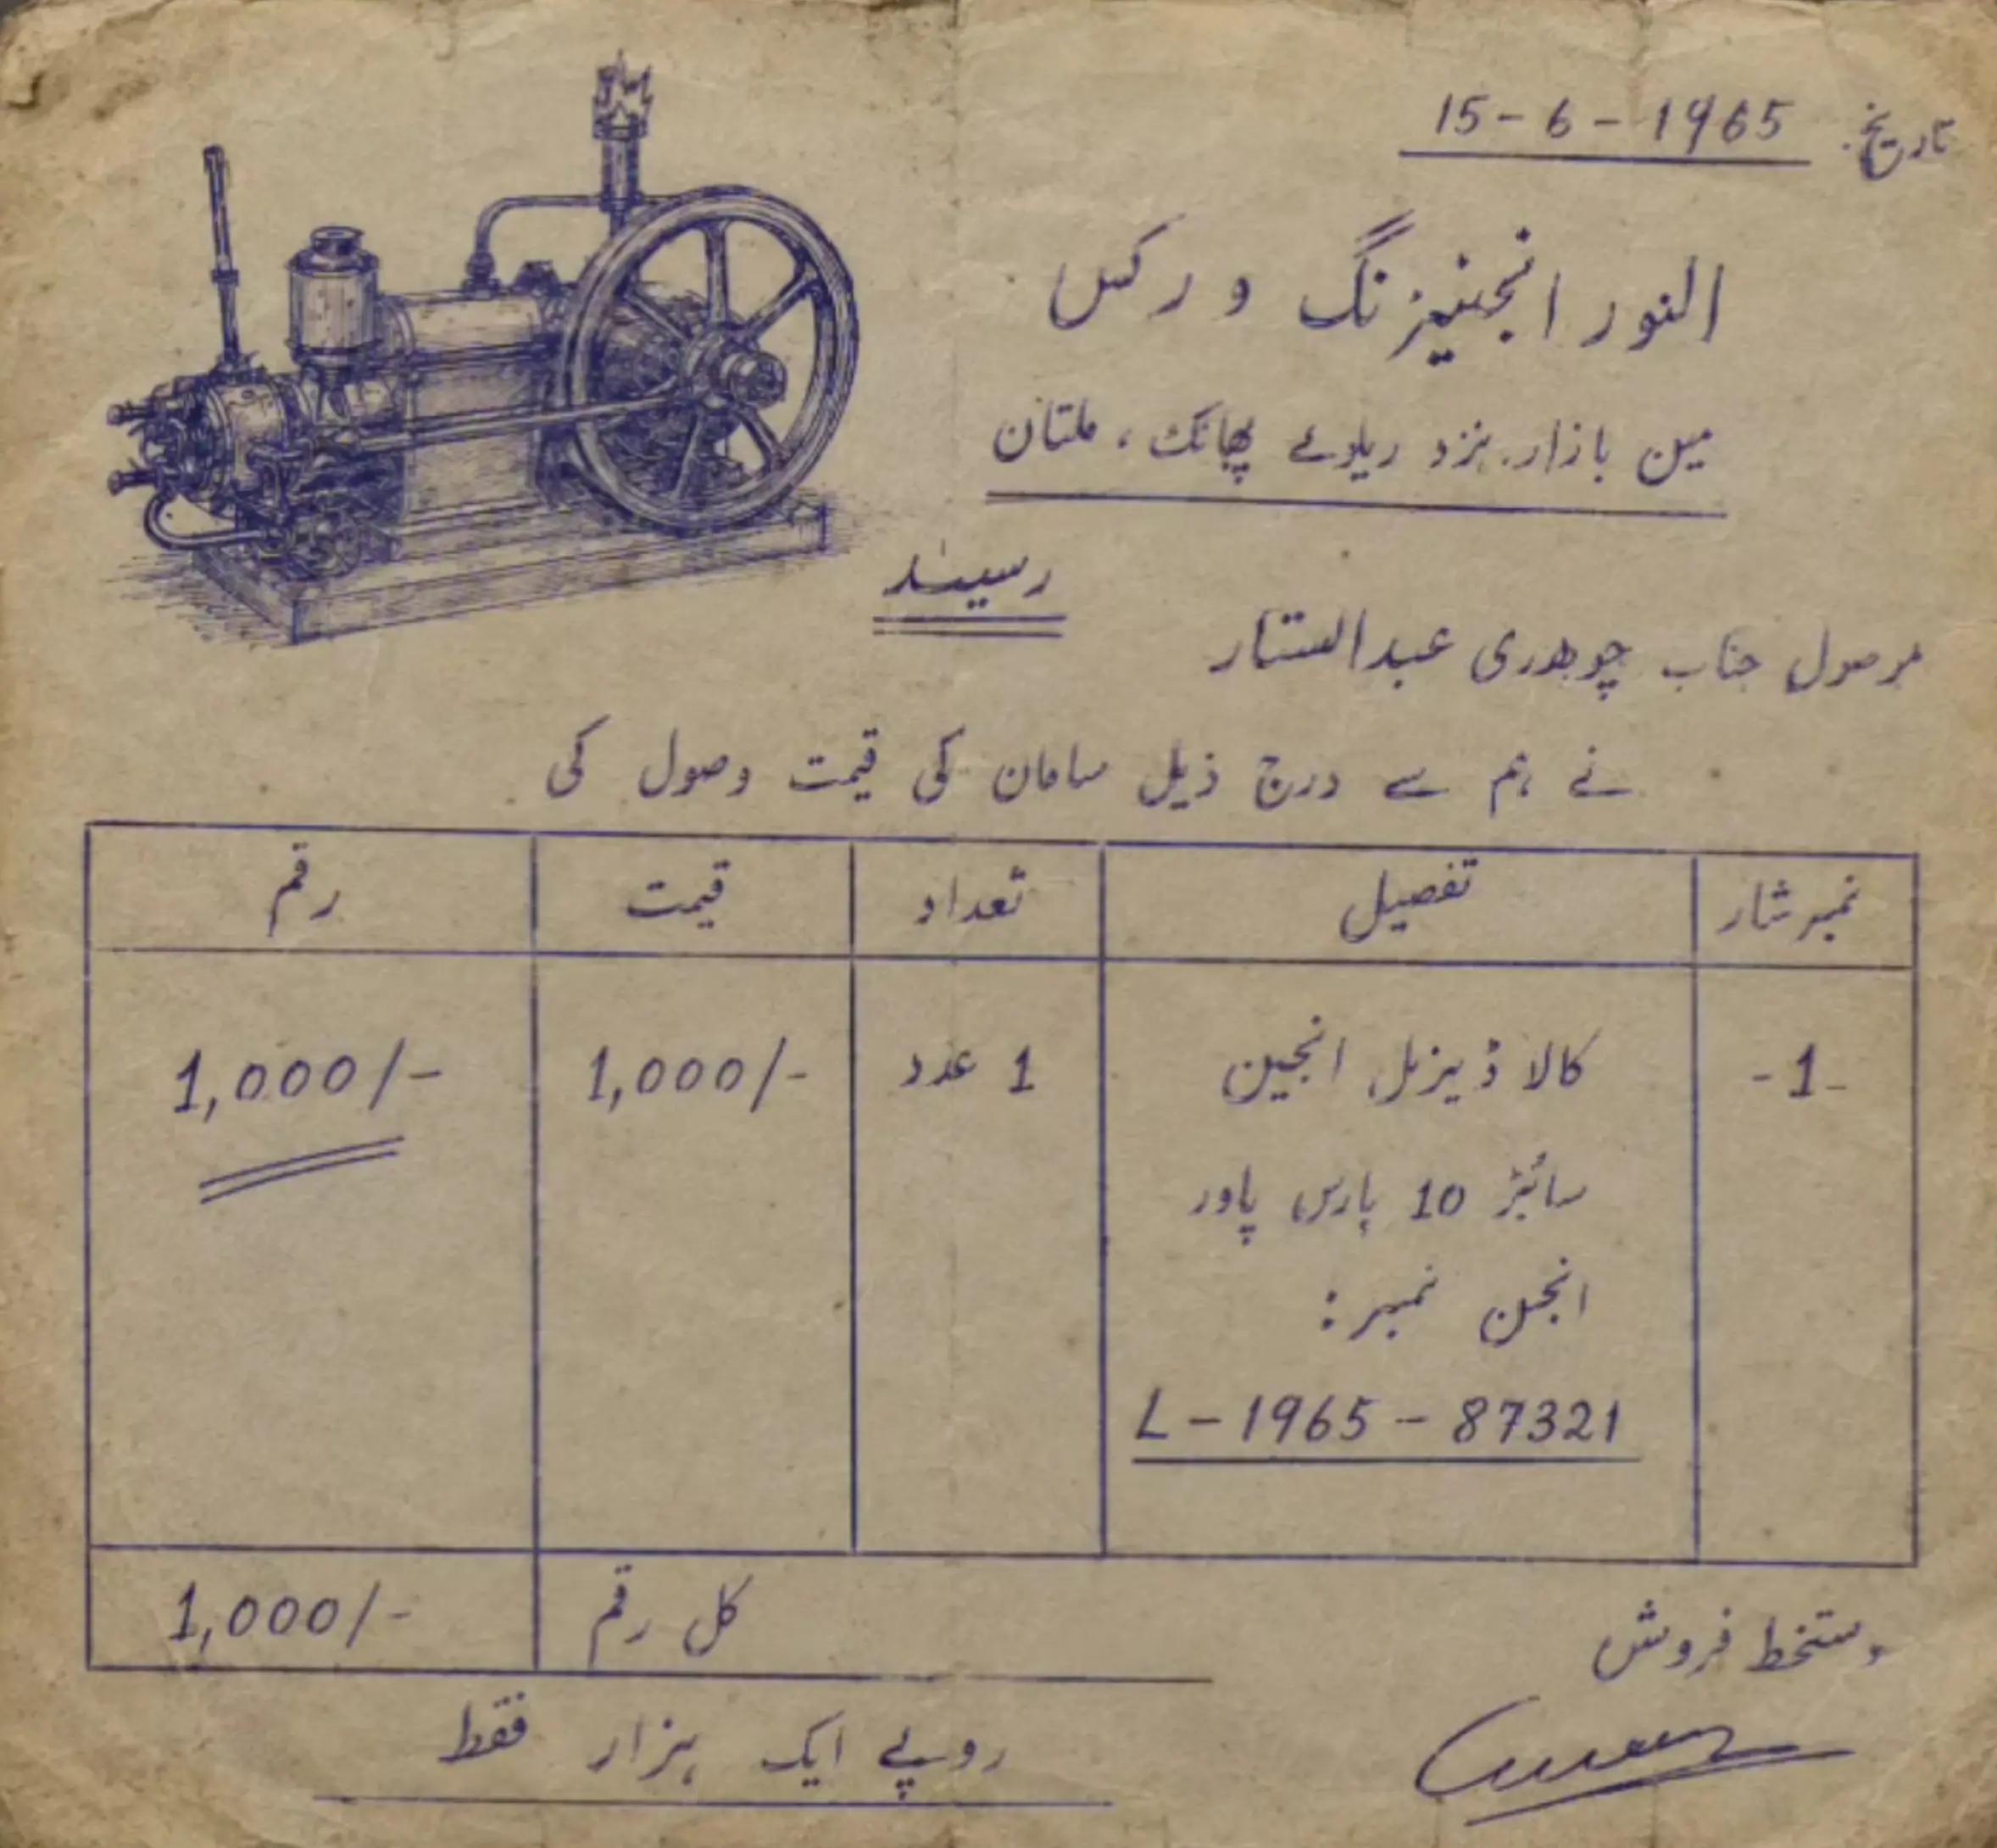 تاریخ: 15-6-1965
النور انجنیئرنگ ورکس
مین بازار نزد ریلوے پھاٹک، ملتان
رسید
مرصول جناب چوھدری عبدالستار
نے ہم سے درج ذیل سامان کی قیمت وصول کی
نمبر شار تفصیل تعداد قیمت رقم
-1- کالا ڈیزل انجین 1 عدد 1,000/- 1,000/-
سائیز 10 ہارس پاور
انجن نمبر:
L-1965-87321
کل رقم 1,000/-
دستخط فروش
روپے ایک ہزار فقط